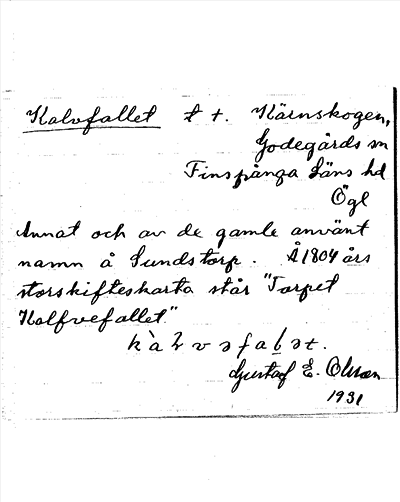 Kalvfallet t t. Kärnskogen,
Godegårds sn
Finspånga Läns hd
Ögl
Annat och av de gamle använt
namn å Sundstorp. Å 1804 års
storskifteskarta står "Torpet
Kalfvefallet."
Gustaf E. Olsson
1931